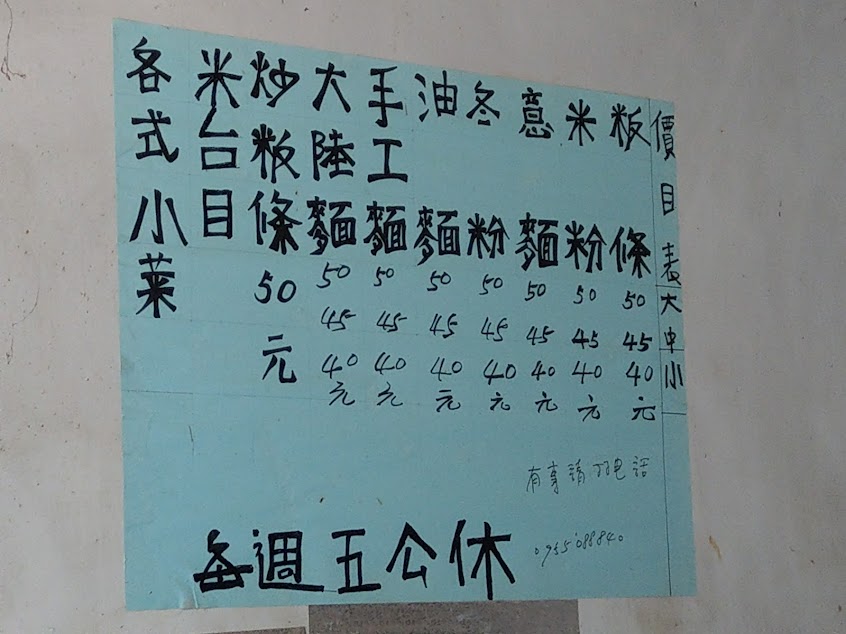 價目表 大 中 小
粄條 50 45 40元
米粉 50 45 40元
意麵 50 45 40元
冬粉 50 45 40元
油麵 50 45 40元
手工麵 50 45 40元
大陸麵 50 45 40元
炒粄條 50元
米台目
各式小菜
有事請打电話
0955088840
每週五公休